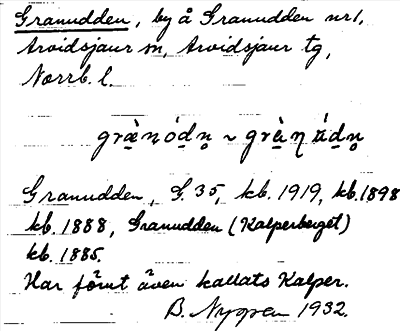 Granudden, by å Granudden nr 1,
Arvidsjaur sn, Arvidsjaur tg,
Norrb. l.
grànódn ~ grànúdn
Granudden, G. 35, kb. 1919, kb. 1898
kb. 1888, Granudden (Kalperberget)
kb. 1885.
Har förut även kallats Kalper.
B. Nygren 1932.